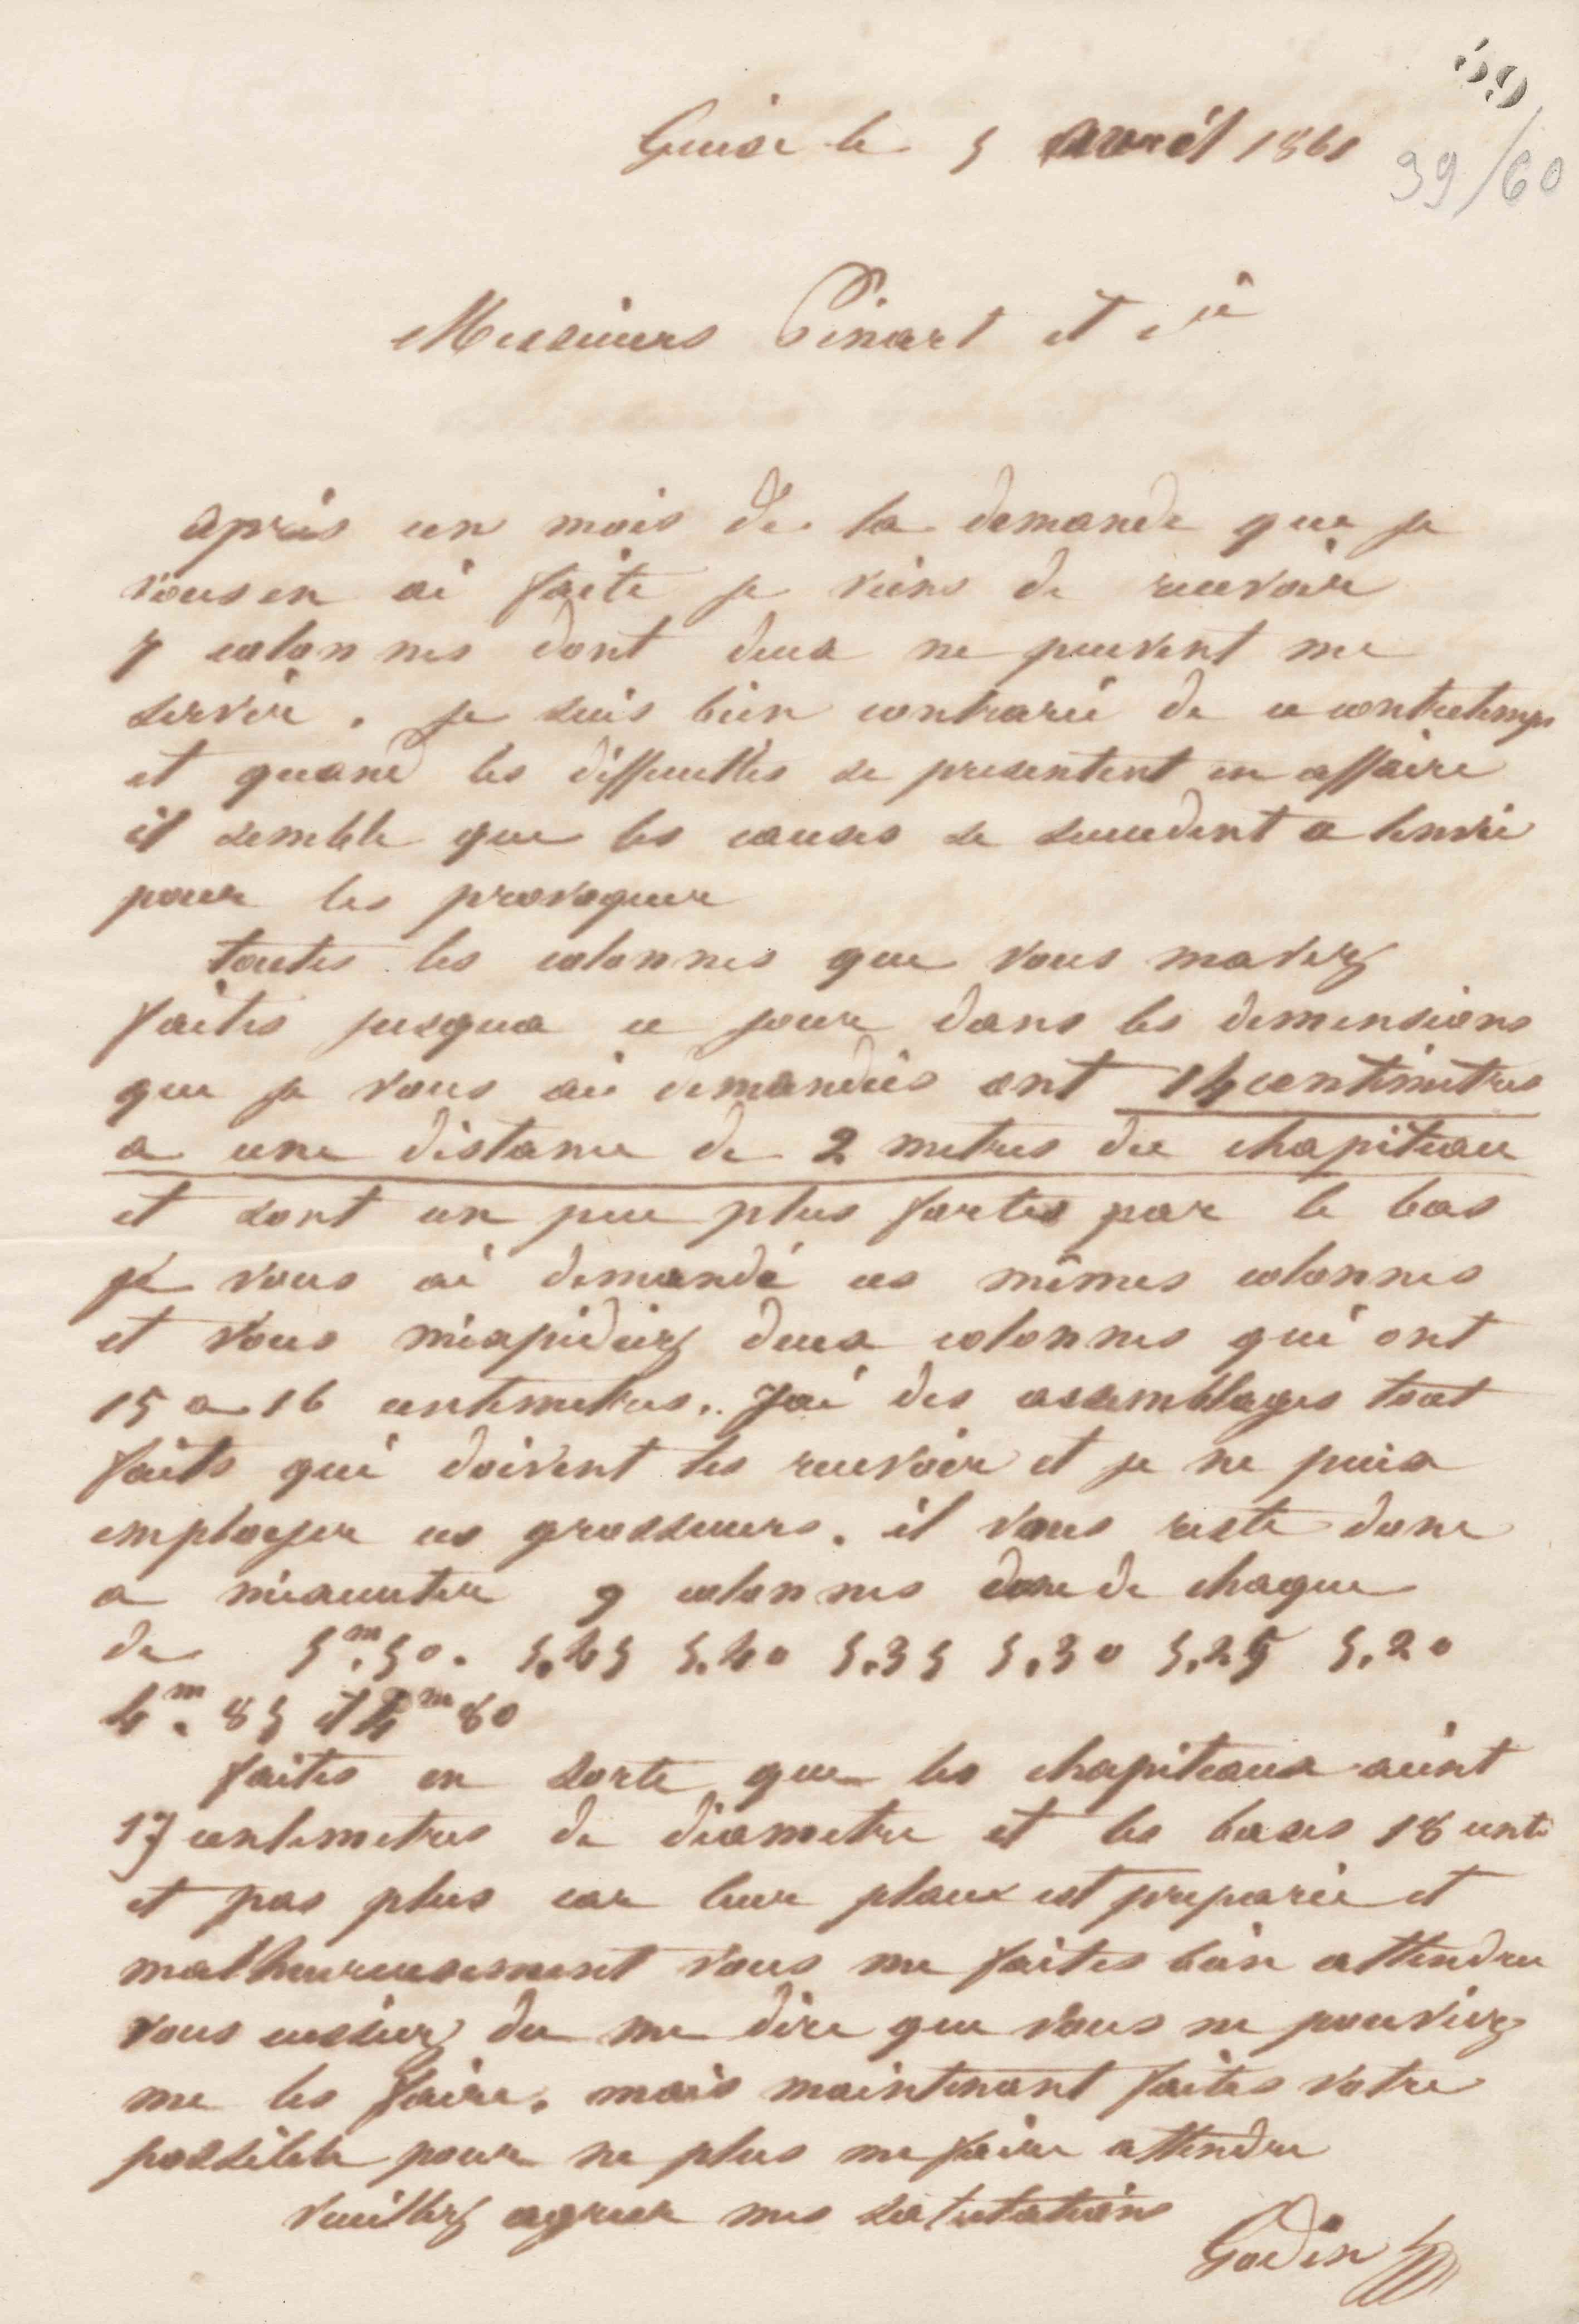 59
39/60
Guise le 5 avril 1861
Messieurs Pinart et cie
après un mois de la demande que je
vous en ai faite je viens de recevoir
7 colonnes dont deux ne peuvent me
servir. je suis bien contrarié de ce contretemps
et quand les difficultés se presentent en affaire
il semble que les causes se succedent a lenvie
pour les provoquer
toutes les colonnes que vous mavez
faites jusqua ce jour dans les dimensions
que je vous ai demandées ont 14 centimetres
a une distance de 2 metres du chapiteau
et sont un peu plus fortes par le bas
je vous ai demandé ces mêmes colonnes
et vous m'expediez deux colonnes qui ont
15 a 16 centimetres. J'ai des assemblages tout
faits qui doivent les recevoir et je ne puis
employer ces grosseurs. il vous reste donc
a m'executer 9 colonnes de chaque
de 5m.50. 5.45 5.40 5.35 5.30 5.25 5.20
4m.85 et 4m80
faites en sorte que les chapiteaux aient
17 centimetres de diametre et les bases 18 centi
et pas plus car leur place est preparée et
malheureusement vous me faites bien attendre
vous eussiez du me dire que vous ne pouviez
me les faire. mais maintenant faites votre
possible pour ne plus me faire attendre
Veuillez agreer mes salutations
Godin